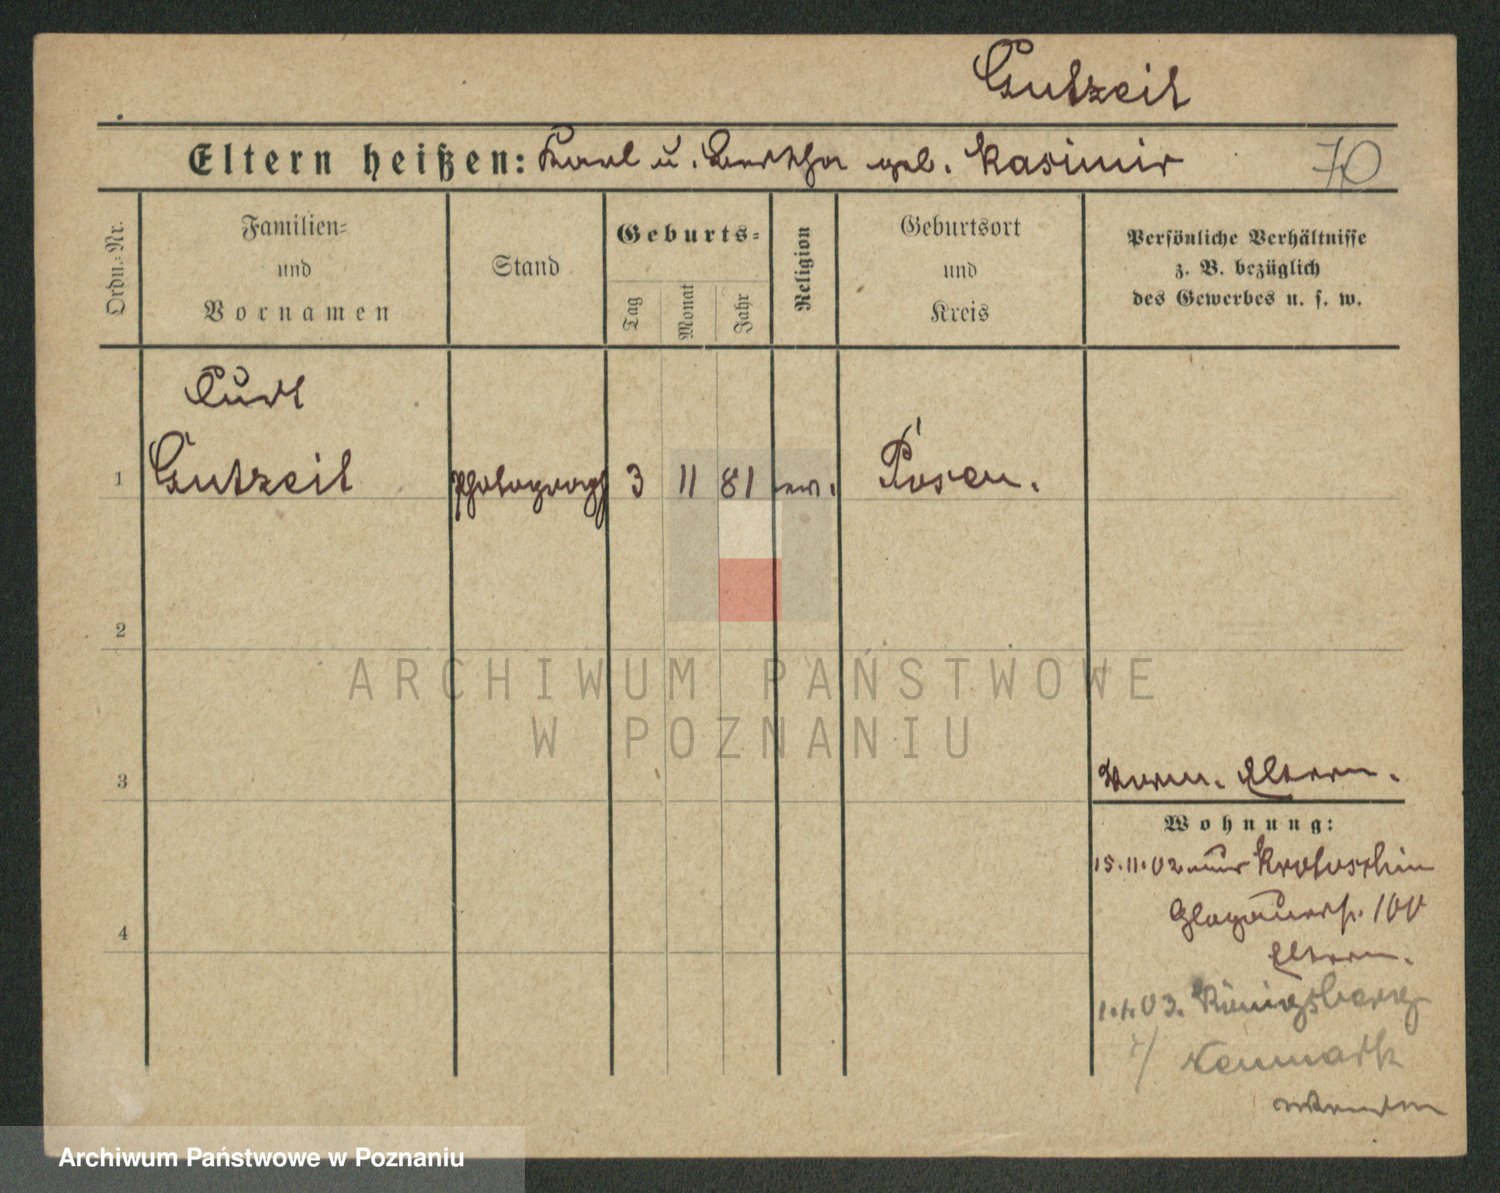 Gutzeit
Eltern heißen: Karl u. Bertha geb. Kasimir
70
Ordn.-Nr.
Familien-
und
Vornamen
Stand
Geburts-
Tag
Monat
Jahr
Religion
Geburtsort
und
Kreis
Persönliche Verhältnisse
z. B. bezüglich
des Gewerbes u. s. w.
Curt
1 Gutzeit Photograph 3 11 81 ev. Posen.
2
ARCHIWUM PAŃSTWOWE
W POZNANIU
3
Eltern.
Wohnung:
15.11.02 Krotoschin
Glogauerstr. 100
4
Eltern.
1.1.03. Königsberg
Neumark
Archiwum Państwowe w Poznaniu